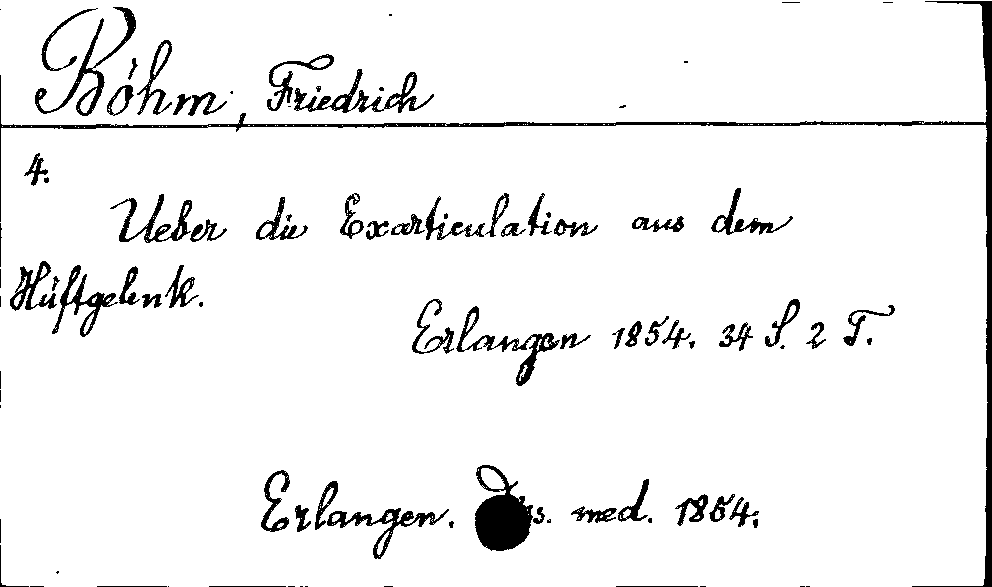 Böhm, Friedrich
4.
Ueber die Exarticulation aus dem
Hüftgelenk.
Erlangen 1854. 34 S. 2 T.
Erlangen. Diss. med. 1854.